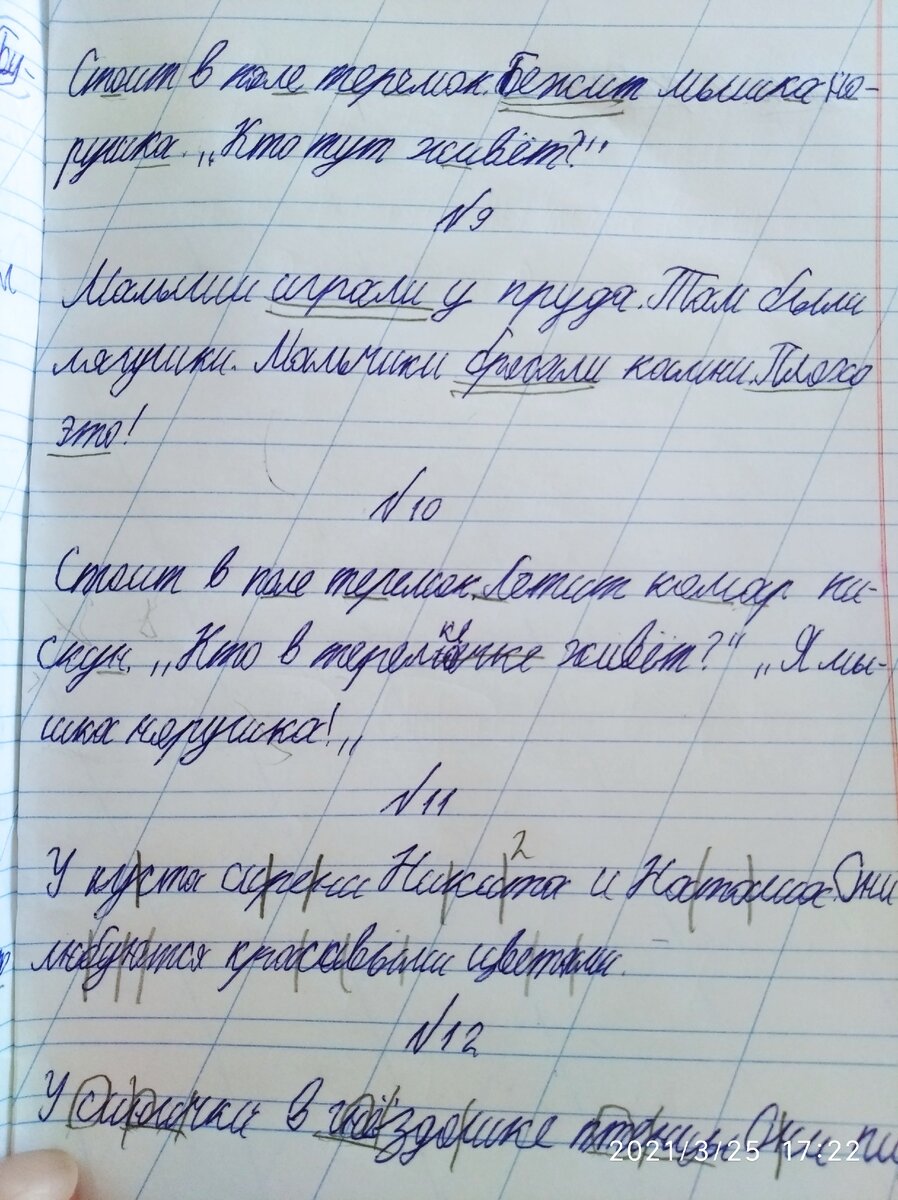 Стоит в поле теремок. Бежит мышка но-
рушка. „Кто тут живёт?"
№9
Малыши играли у пруда. Там были
лягушки. Мальчики бросали камни. Плохо
это!
№10
Стоит в поле теремок. Летит комар пи-
скун. „Кто в теремке живёт?" „Я мы-
шка норушка!„
№11
У куста сирени Никита и Наташа. Они
любуются красивыми цветами.
2
№12
У синички в гнёздышке птенцы. Они пи
2021/3/25 17:22